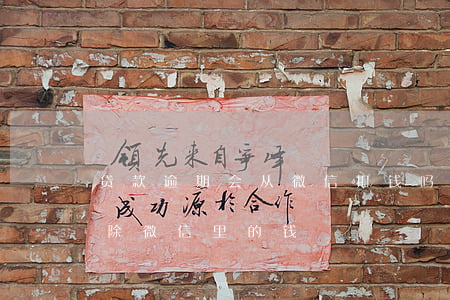 领先来自争峰
贷款逾期会从微信扣钱吗
成功源於合作
除微信里的钱